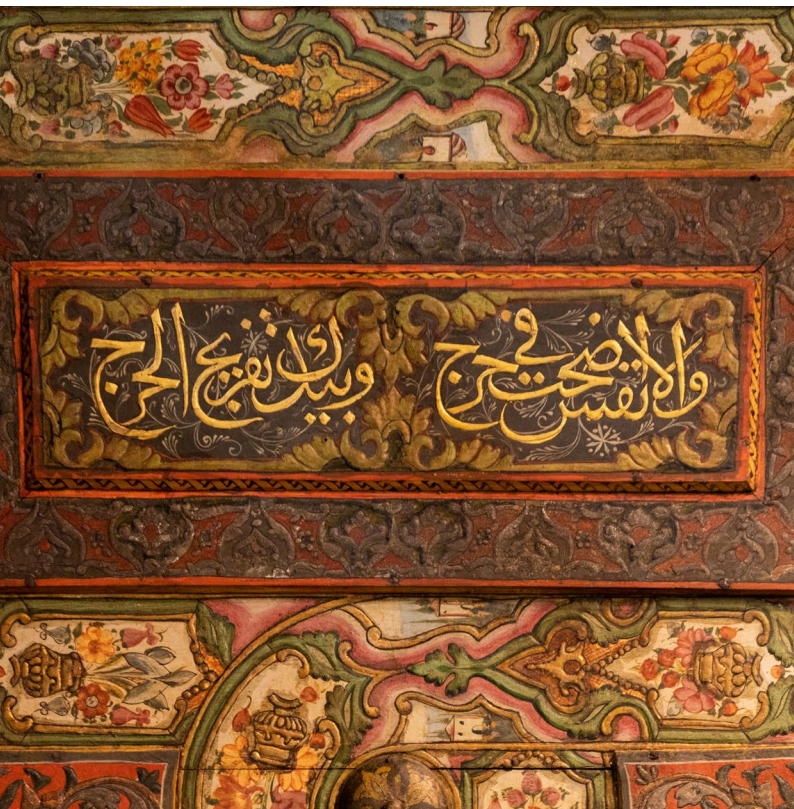 والانفس اضحت في حرج وبيدك تفريج الحرج